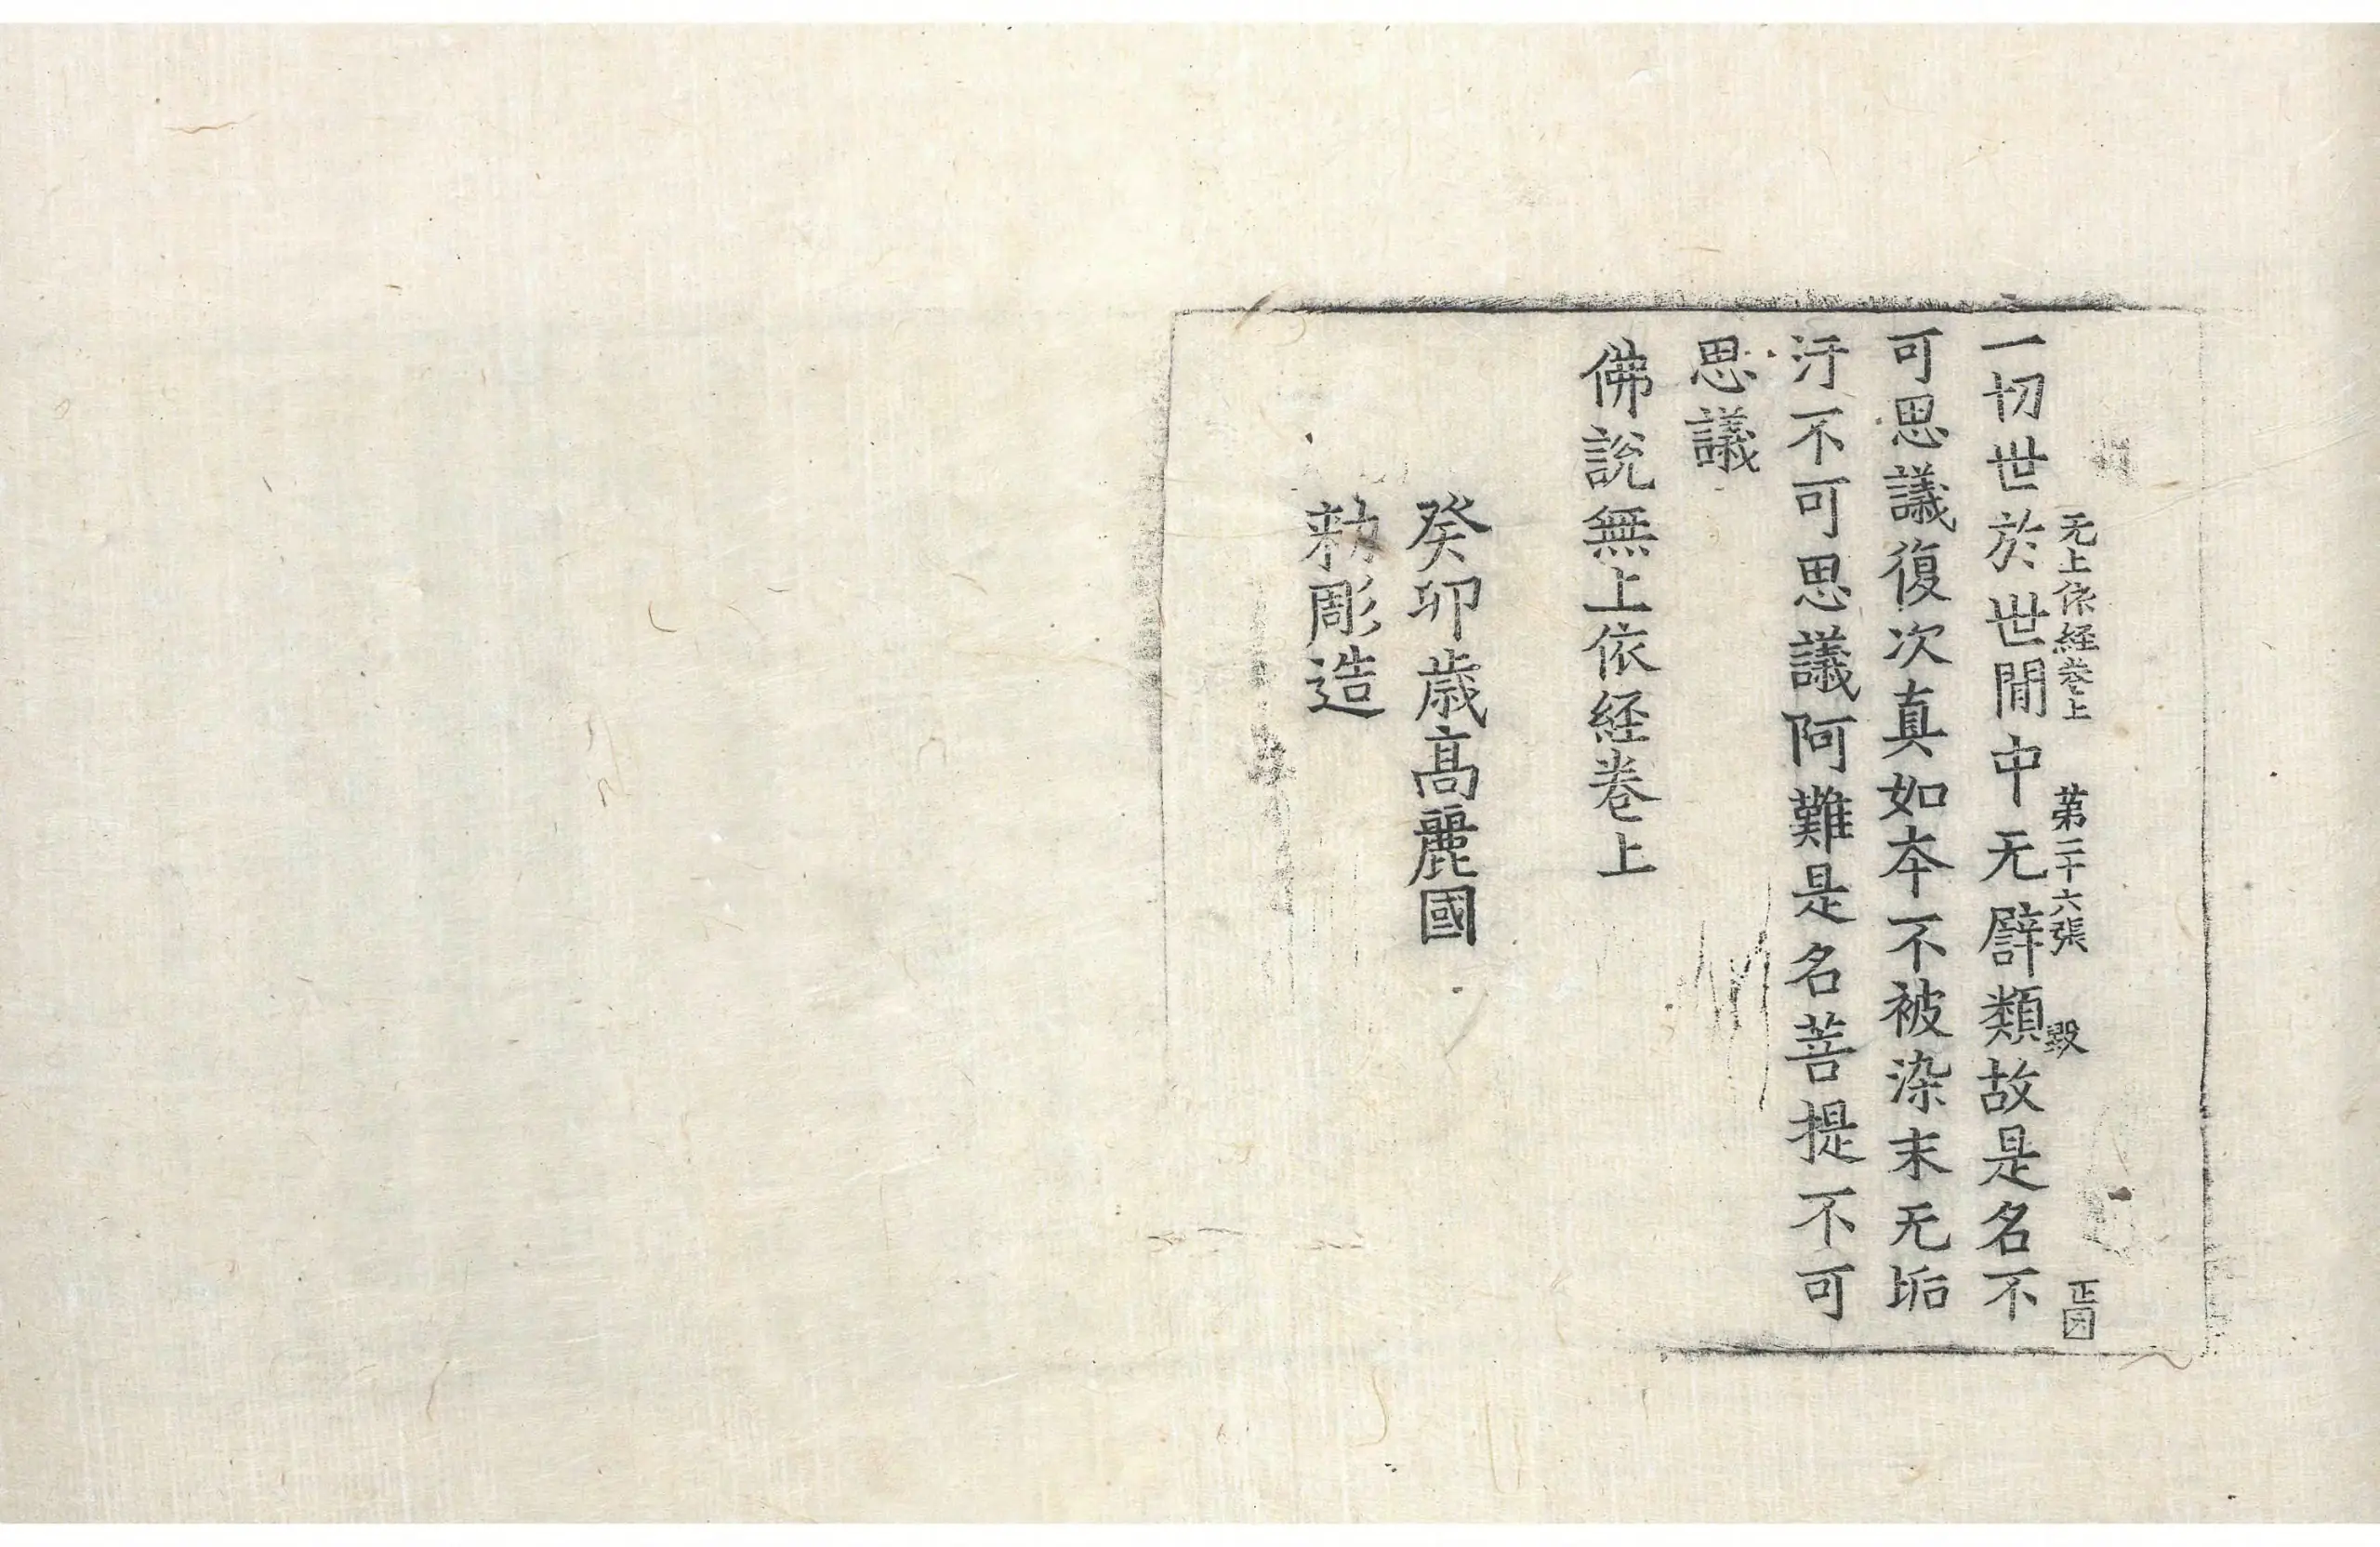 无上依経卷上 第二十六張 毀 正因
一切世於世間中无譬類故是名不
可思議復次真如夲不被染末无垢
汙不可思議阿難是名菩提不可
思議
佛說無上依経卷上
癸卯歲高麗國
勑彫造